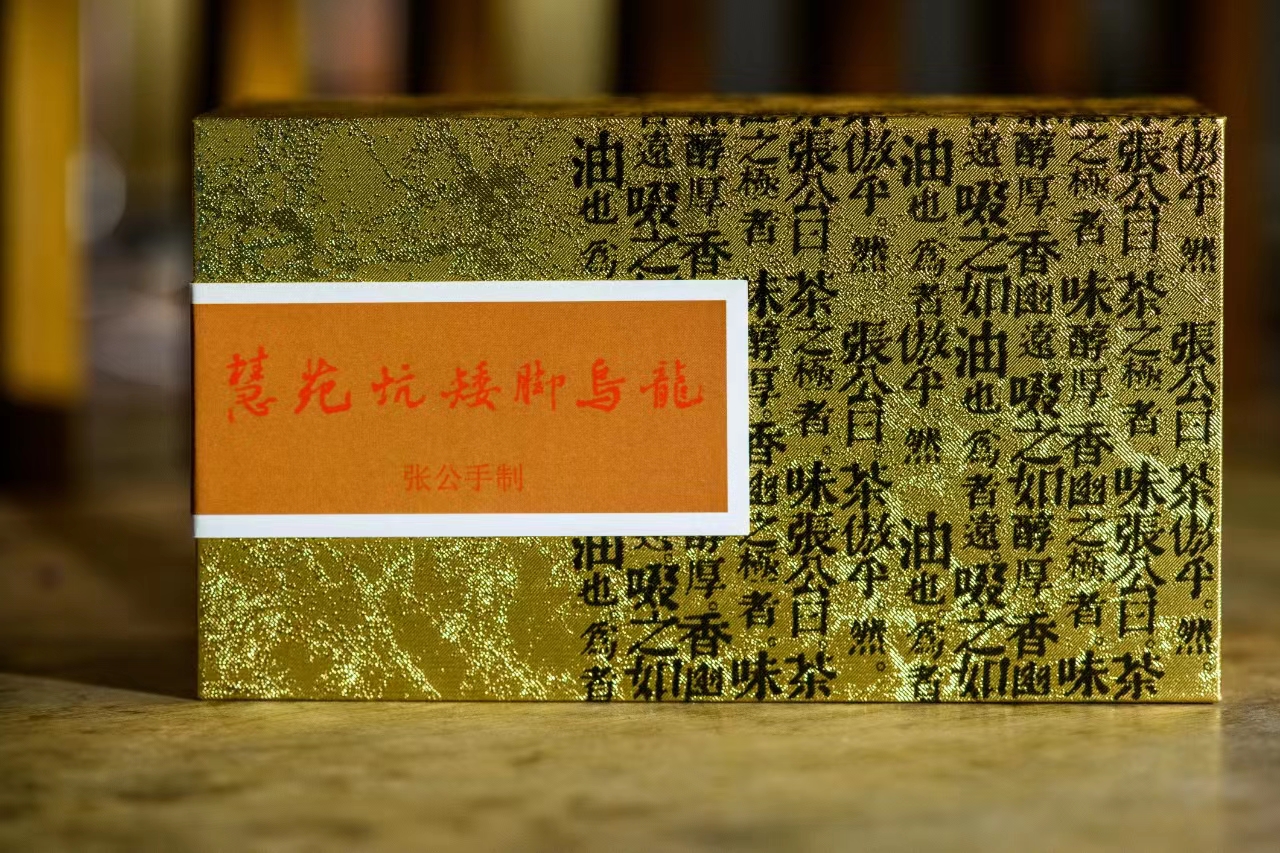 慧苑坑矮脚烏龍
张公手制
倣乎。然張公曰茶倣乎。然。
張公曰茶之極者。味張公曰茶
之極者味醇厚。香幽之極者。味
醇厚。香幽遠。啜之如醇厚。香幽
遠。啜之如油也。為者遠。啜之如
油也。為者倣乎。然油也。為者
倣乎。然張公曰茶倣乎。然。
張公曰茶之極者。味張公曰茶
之極者味醇厚。香幽之極者。味
醇厚。香醇厚。香幽
遠。啜之遠。啜之如
油也。為油也。為者